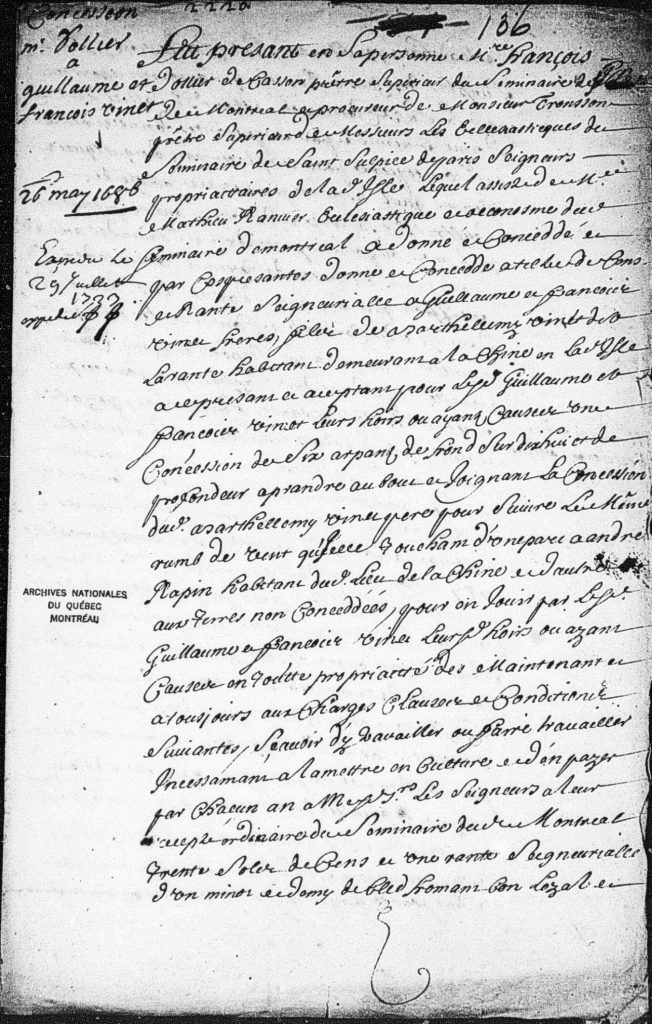 Concession 2220
136
mr. Dollier
a
guillaume et
francois vinet
26 may 1686
29 Juillet
1737
ARCHIVES NATIONALES
DU QUÉBEC
MONTRÉAL
Fut présant en Sa personne Mre. françois
Dollier de Casson prêtre Superieur du Seminaire de
de Montreal et procureur de Monsieur Tronsson
prêtre Superieur de Messieurs Les Ecclesiastiques du
Seminaire de Saint Sulpice de paris Seigneurs
propriettaires de lad. Isle Lequel assisté de Mre.
Mathieu Ranuier Eclesiastique et œconosme dud.
Seminaire de montreal a donné et Conceddé et
par Ces presantes donne et Concedde a tiltre de Cens
et Rante Seigneurialle a Guillaume et francois
vinet freres, filz de Barthellemy vinet dit
Larante habitant demeurant a la Chine en lad. Isle
a ce presant et aceptant pour Lesd. Guillaume et
francois vinet Leurs hoirs ou ayans Causes une
Concession de Six arpans de frond Sur dix huict de
profondeur a prandre au bout et Joignant La Concession
dud. Barthellemy vinet pere pour Suivre Le Même
rumb de vent qu'jcelle Touchant d'une part a andré
Rapin habitant dud. Lieu de la Chine et d'autre
aux Terres non Conceddéés, pour en Jouir par Lesd.
Guillaume et francois vinet Leursd. hoirs ou ayans
Causes en toutte propriaité des Maintenant et
a tousjours aux Charges Clauses et Conditions
Suivantes, Sçavoir d'y travailler ou faire travailler
Incessamant a la mettre en Culture et d'en payer
par Chacun an a Mesd. Srs. Les Seigneurs a leur
recepte ordinaire du Seminaire dud. Montreal
Trente Solz de Cens et une rante Seigneurialle
d'un minot et demy de bled fromant bon Loyal et